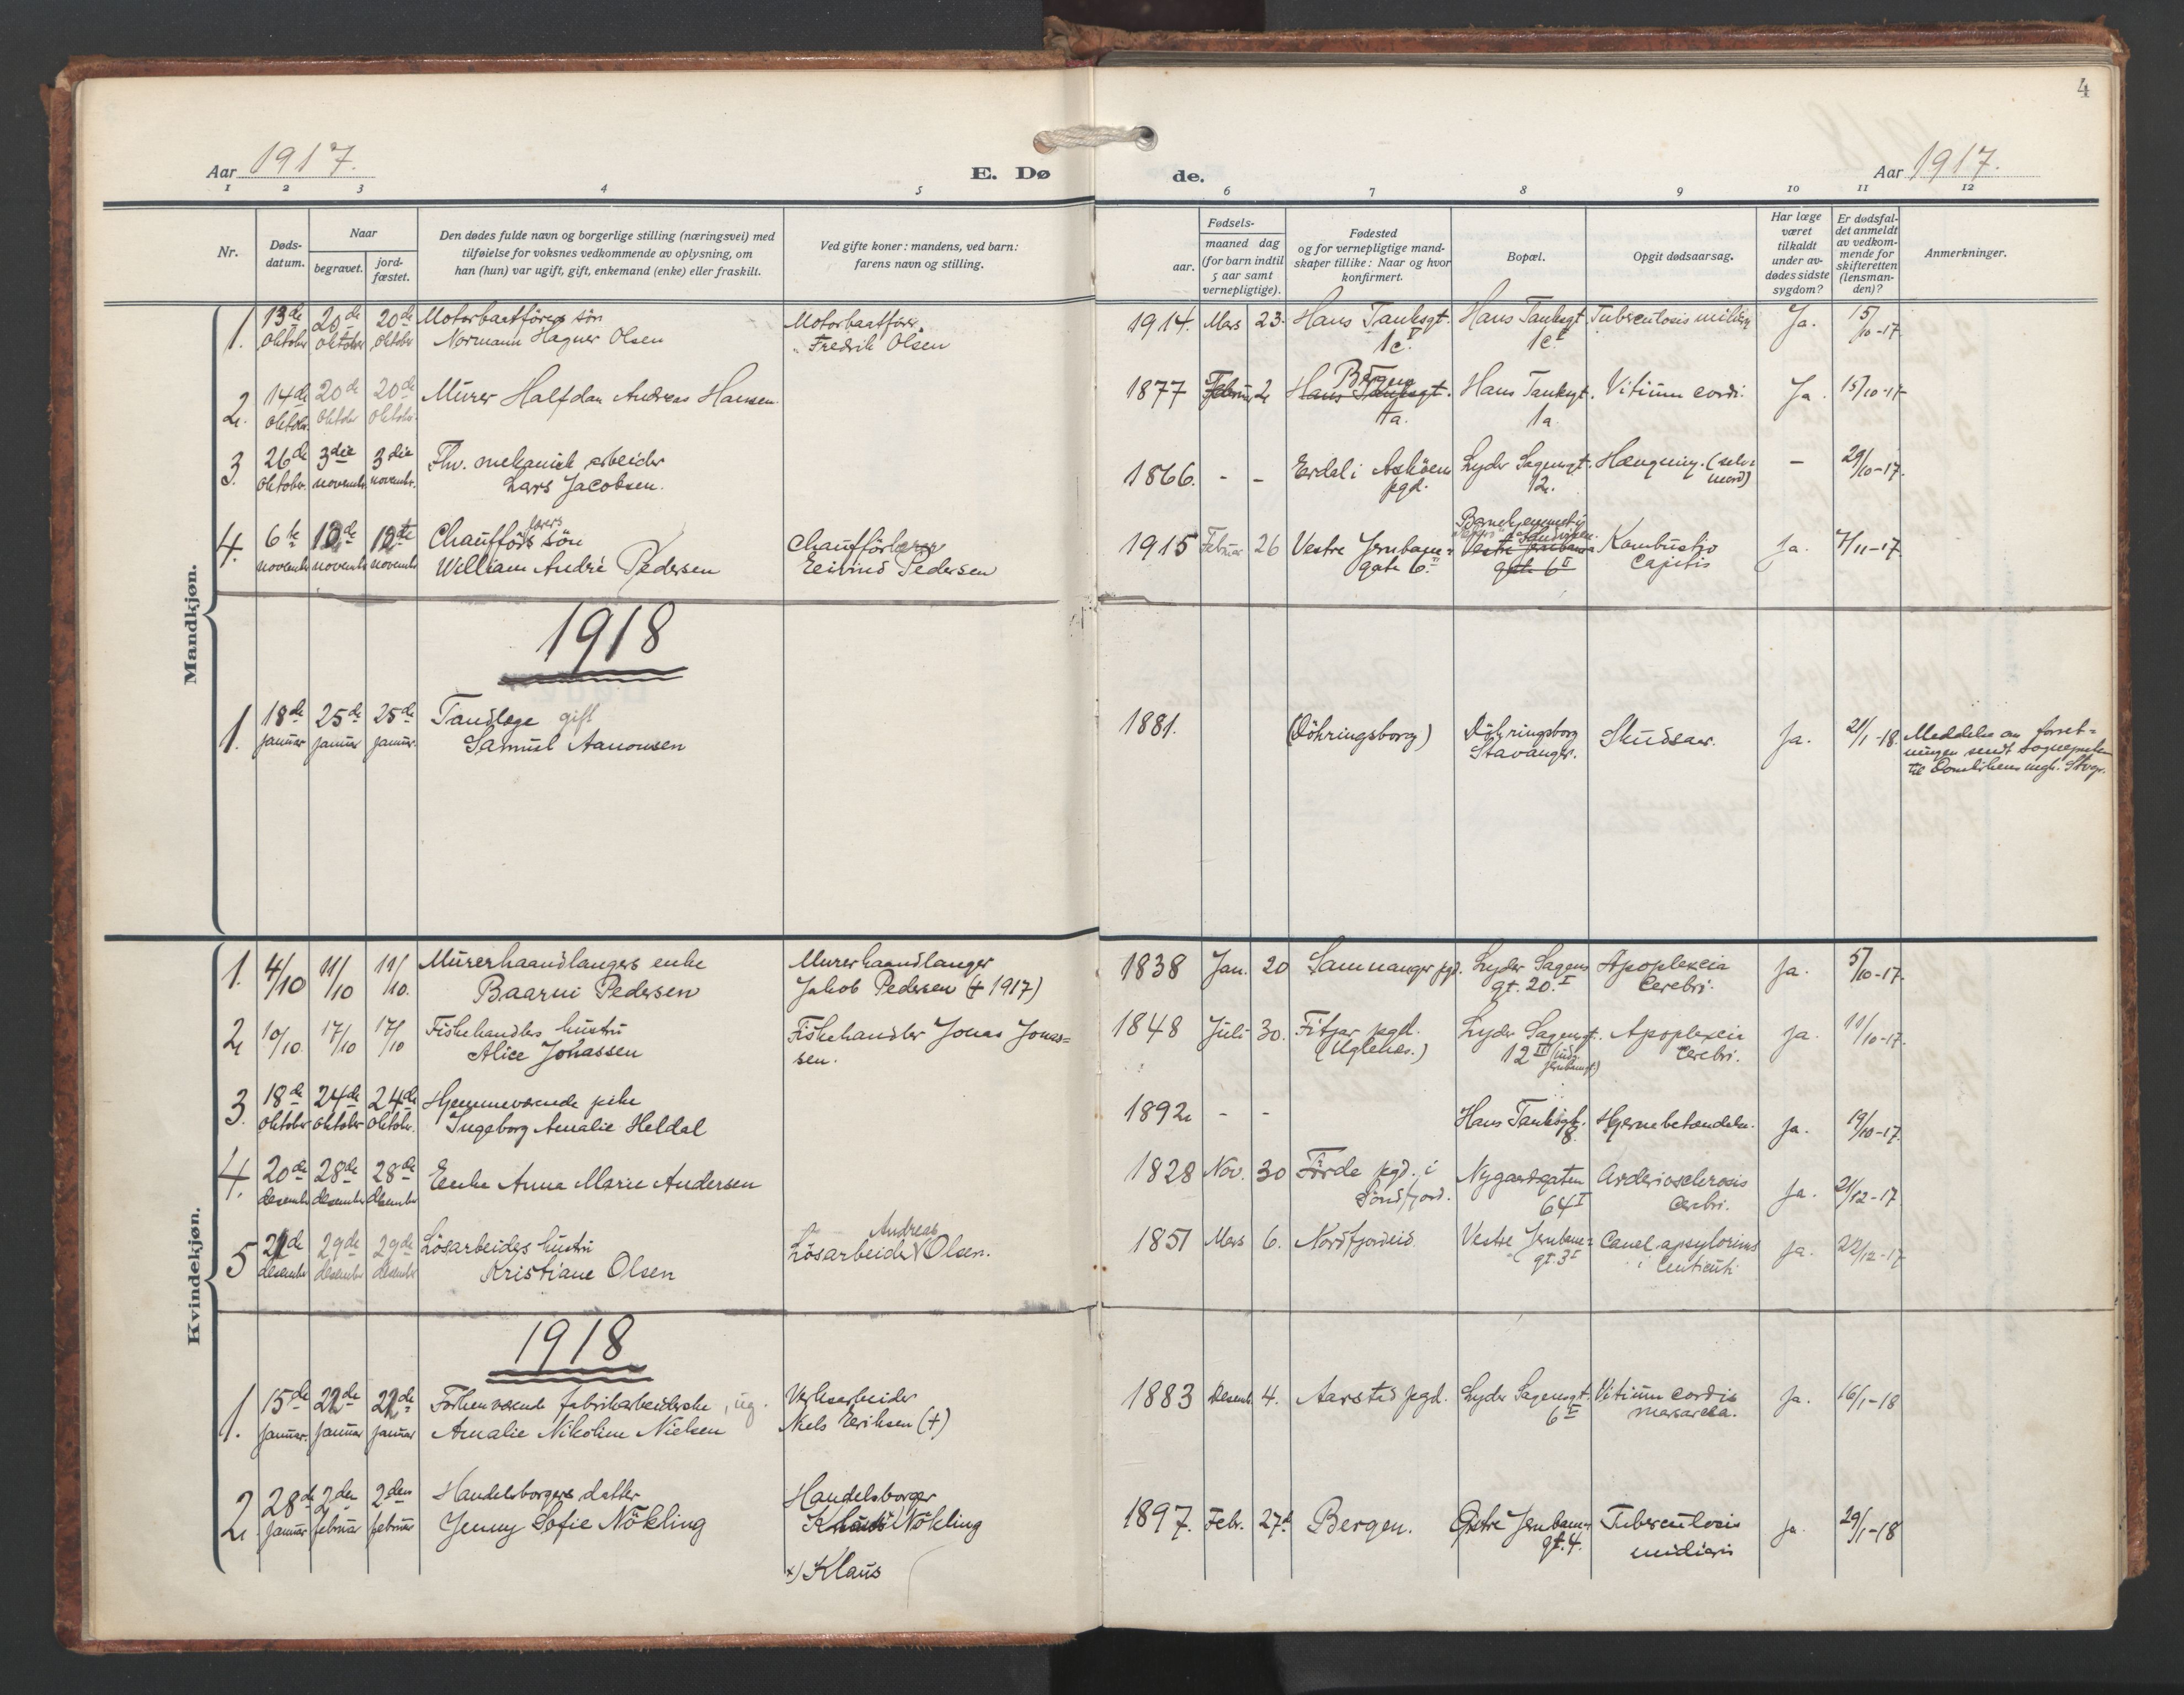 4
Aar 1917.
E. Dø
de.
Aar 1917.
1 2 3 4 5 6 7 8 9 10 11 12
Nr.
Døds-
datum.
Naar
begravet.
jord-
fæstet.
Den dødes fulde navn og borgerlige stilling (næringsvei) med
tilføielse for voksnes vedkommende av oplysning, om
han (hun) var ugift, gift, enkemand (enke) eller fraskilt.
Ved gifte koner: mandens, ved barn:
farens navn og stilling.
Fødsels-
aar.
maaned dag
(for barn indtil
5 aar samt
vernepligtige).
Fødested
og for vernepligtige mand-
skaper tillike: Naar og hvor
konfirmert.
Bopæl.
Opgit dødsaarsag.
Har læge
været
tilkaldt
under av-
dødes sidste
sygdom?
Er dødsfal-
det anmeldt
av vedkom-
mende for
skifteretten
(lensman-
den)?
Anmerkninger.
Mandkjøn.
1. 13de 20de 20de Motorbaatförers sön Motorbaatförer 1914. Mars 23. Hans Tanksgt. Hans Tanksgt. Tuberculosis miliaris Ja. 15/10-17.
oktober oktober oktober Normann Hagner Olsen Fredrik Olsen 1c I. 1c I.
2. 14de 20de 20de Murer Halfdan Andreas Hansen. 1877 Februar 2. Bergen Hans Tanksgt. Hans Tanksgt. Vitium cordi. Ja. 15/10-17
oktober oktober oktober 1a. 1a
3. 26de 3die 3die Fhv. mekanisk arbeider 1866. - - Erdal i Asköens Lyder Sagensgt. Hængning. (selv- - 29/10-17.
oktober. november november. Lars Jacobsen. pgd. 12. mord)
4. 6te 10de 10de Chaufförs lærers sön Chaufförlærer 1915 Februar 26 Vestre Jernbane- Barnehjemmet Sandviken Vestre Jernbane- Kombustio Ja. 7/11-17
november november november William André Pedersen Eivind Pedersen gate 6 II gate 6 II Capitis
1918
1. 18de 25de 25de Tandlæge gift 1881. (Döhringsborg) Döhringsborg Skudsaar. Ja. 21/1-18. Meddelelse om forret-
januar januar januar. Samuel Aanonsen Stavanger. ningen sendt sognepresten
til Domkirkens mgh. Stvgr.
Kvindekjøn.
1. 4/10 11/10 11/10. Murerhaandlangers enke Murerhaandlanger 1838 Jan. 20 Samnanger pgd. Lyder Sagens Apoplexia Ja. 5/10-17.
Baarni Pedersen Jakob Pedersen († 1917) gt. 20. I Cerebri.
2. 10/10. 17/10 17/10 Fiskehandlers hustru Fiskehandler Jonas Jonas- 1848 Juli 30. Fitjar pgd. Lyder Sagensgt. Apoplexia Ja. 11/10-17.
Alice Jonassen sen. (Uglenes.) 12 II Cerebri.
3. 18de 24de 24de Hjemmeværende pike 1892 - - Hans Tanksgt. Hjernebetændelse. Ja. 19/10-17.
oktober oktober oktober. Ingeborg Amalie Heldal 8.
4. 20de 28de 28de Enke Anna Marie Andersen 1828 Nov. 30 Förde pgd. i Nygaardsgaten Arderiosclerosis Ja. 21/12-17
desember desember desember Söndfjord. 64 I Cerebri.
5 21de 29de 29de Lösarbeiders hustru Lösarbeider Andreas Olsen. 1851 Mars 6. Nordfjordeid. Vestre Jernbane- Ja. 22/12-17
desember desember desember Kristiane Olsen gt. 3 I
1918
1. 15de 22de 22de Forhenværende fabrikarbeiderske, ug. Verksarbeider 1883 Desemb. 4. Aarstad pgd. Lyder Sagensgt. Vitium cordis Ja. 16/1-18
januar. januar januar Amalie Nikoline Nielsen Niels Eriksen (†) 6 II
2. 28de 2den 2den Handelsborgers datter Handelsborger 1897. Febr. 27de Bergen. Östre Jernbane- Tuberculosis Ja. 29/1-18
januar februar februar Jenny Sofie Nökling Nökling gt. 4. midiaris
x) Klaus